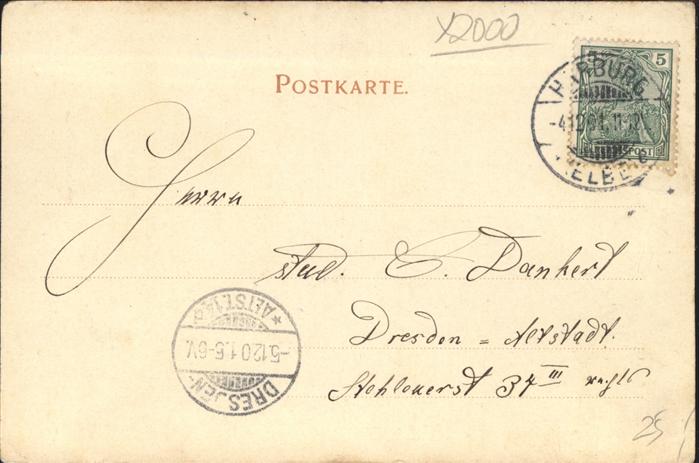 X2000
POSTKARTE.
5
HARBURG
-4.12.01.11-12
(ELBE) c
SPOST
Herrn
stud. C. Dankert
Dresden = Altstadt.
37 III rechts
DRESDEN-
-5.12.01.5-6V.
*ALTST.14c
25